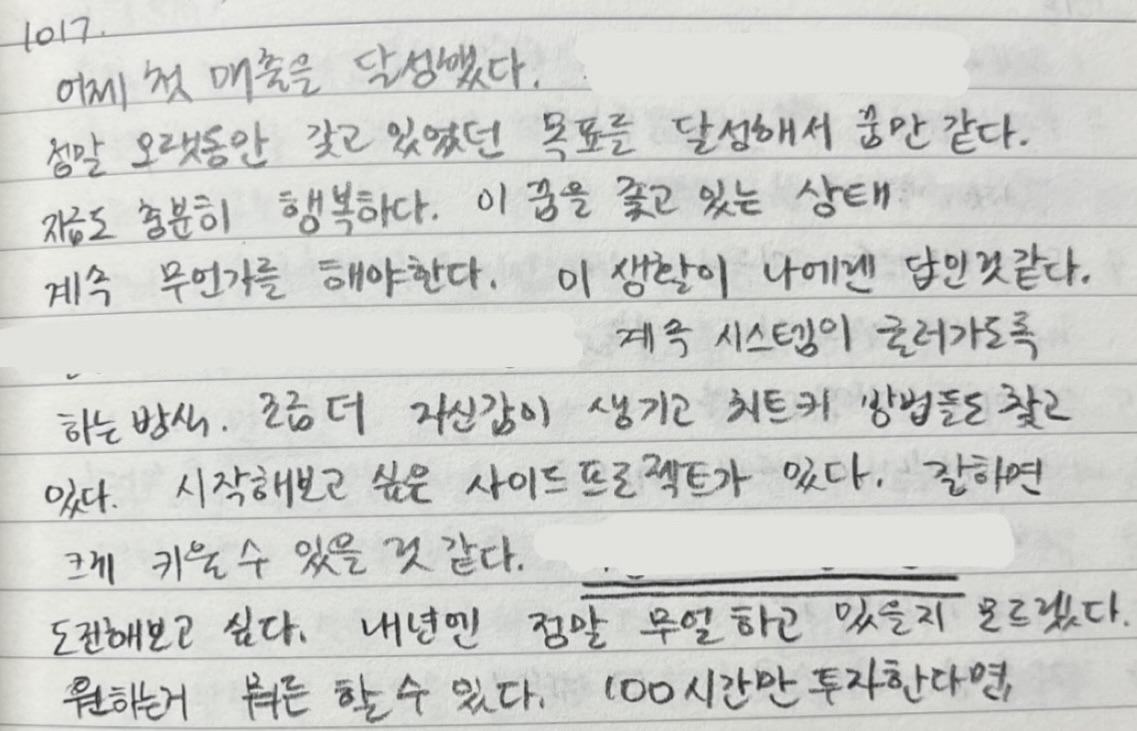 1017.
어제 첫 매출을 달성했다.
정말 오랫동안 갖고 있었던 목표를 달성해서 꿈만 같다.
지금도 충분히 행복하다. 이 꿈을 좇고 있는 상태
계속 무언가를 해야한다. 이 생활이 나에겐 답인것같다.
계속 시스템이 굴러가도록
하는 방식. 조금 더 자신감이 생기고 치트키 방법들도 찾고
있다. 시작해보고 싶은 사이드 프로젝트가 있다. 잘하면
크게 키울 수 있을 것 같다.
도전해보고 싶다. 내년엔 정말 무얼 하고 있을지 모르겠다.
원하는거 뭐든 할 수 있다. 100시간만 투자한다면,